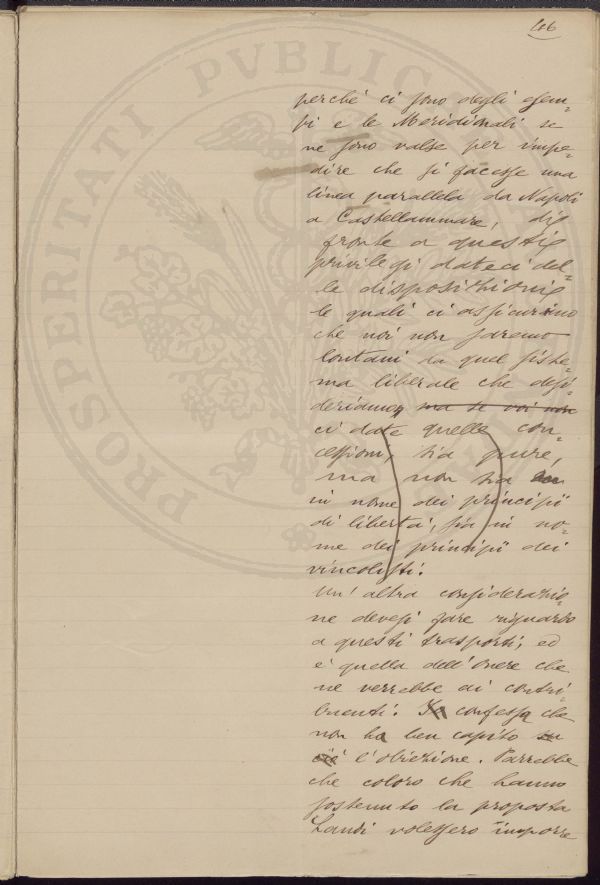 PROSPERITATI PVBLICAE
106
perchè ci sono degli esem=
pi e le Meridionali se
ne sono valse per impe=
dire che si facesse una
linea parallela da Napoli
a Castellammare, di
fronte a questi
privilegi dateci del=
le disposizioni
le quali ci assicurino
che noi non saremo
lontani da quel siste=
ma liberale che desi=
deriamo, ma se voi non
ci date quelle con=
cessioni, sia pure,
ma non sia
in nome dei principii
di libertà, sia in no=
me dei principii dei
vincolisti.
Un'altra considerazio=
ne devesi fare riguardo
a questi trasporti, ed
è quella dell'onere che
ne verrebbe ai contri=
buenti. confessa che
non ha ben capito
l'obiezione. Parrebbe
che coloro che hanno
sostenuto la proposta
Landi volessero imporre